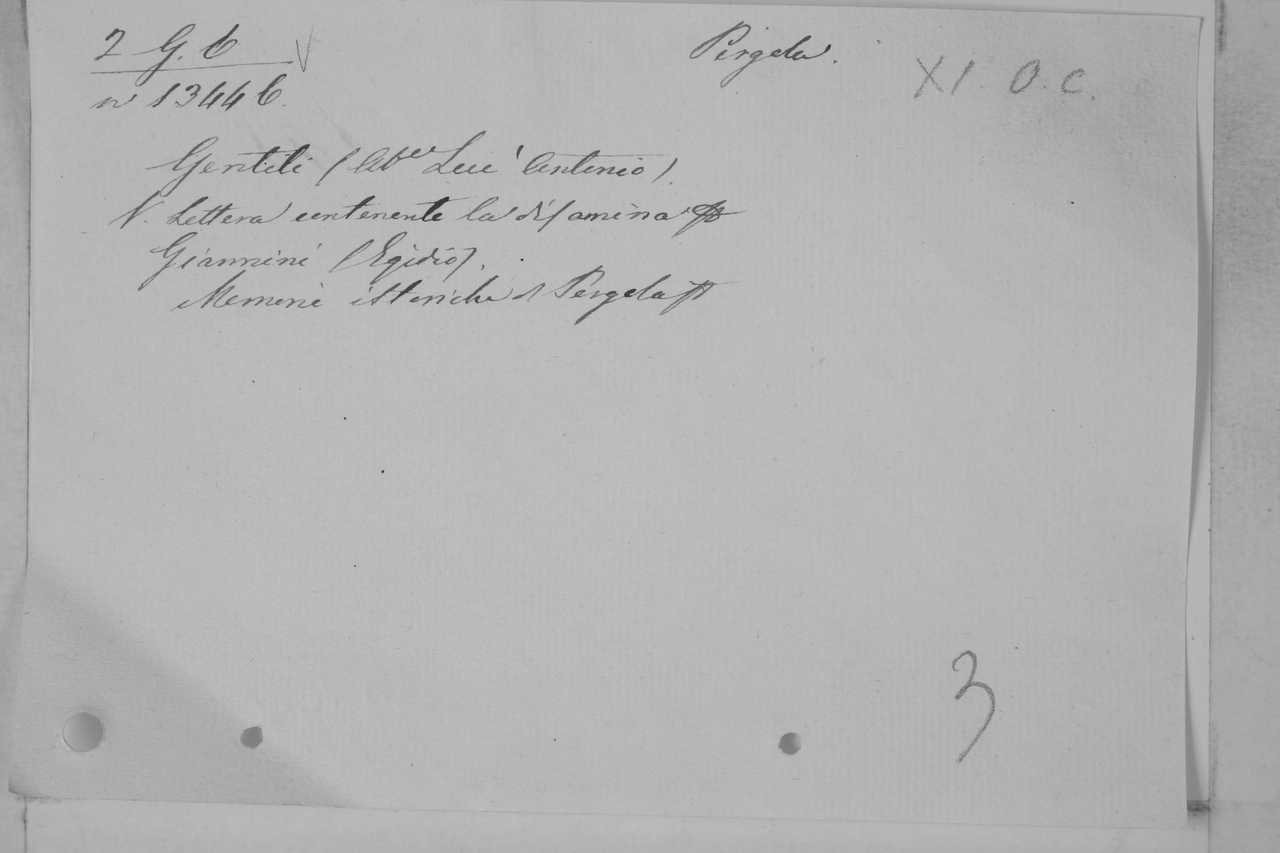 2 G. 6 √
Pergola.
XI. O. C.
n 13446.
Gentili (Ab.e Luc' Antonio).
V. Lettera contenente la disamina
Giannini (Egidio).
Memorie istoriche d Pergola
3